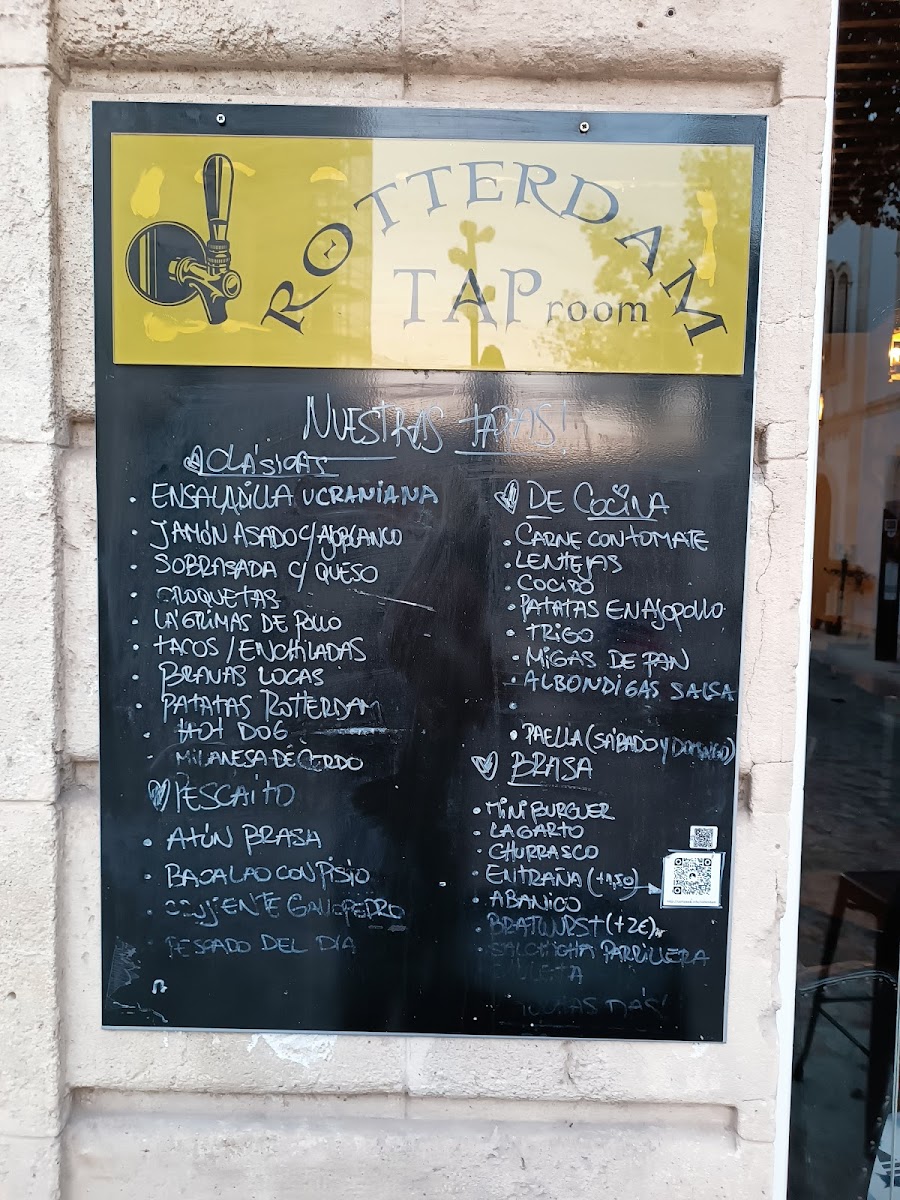 ROTTERDAM
TAP room
NUESTRAS TAPAS!
CLÁSICAS
• ENSALADILLA UCRANIANA
• JAMÓN ASADO C/ AJOBLANCO
• SOBRASADA C/ QUESO
• CROQUETAS
• LÁGRIMAS DE POLLO
• TACOS / ENCHILADAS
• BRAVAS LOCAS
• PATATAS ROTTERDAM
• HOT DOG
- MILANESA DE CERDO
PESCAITO
• ATÚN BRASA
• BACALAO CON PISTO
GALLOPEDRO
• PESCADO DEL DÍA
DE COCINA
• CARNE CON TOMATE
• LENTEJAS
• COCIDO
• PATATAS EN AJOPOLLO
• TRIGO
• MIGAS DE PAN
• ALBONDIGAS SALSA
•
• PAELLA (SÁBADO Y DOMINGO)
BRASA
• MINI BURGUER
• LAGARTO
• CHURRASCO
• ENTRAÑA (+1,50)
• ABANICO
• BRATWURST (+2€)
• SALCHICHA PARRILLERA
MÁS!